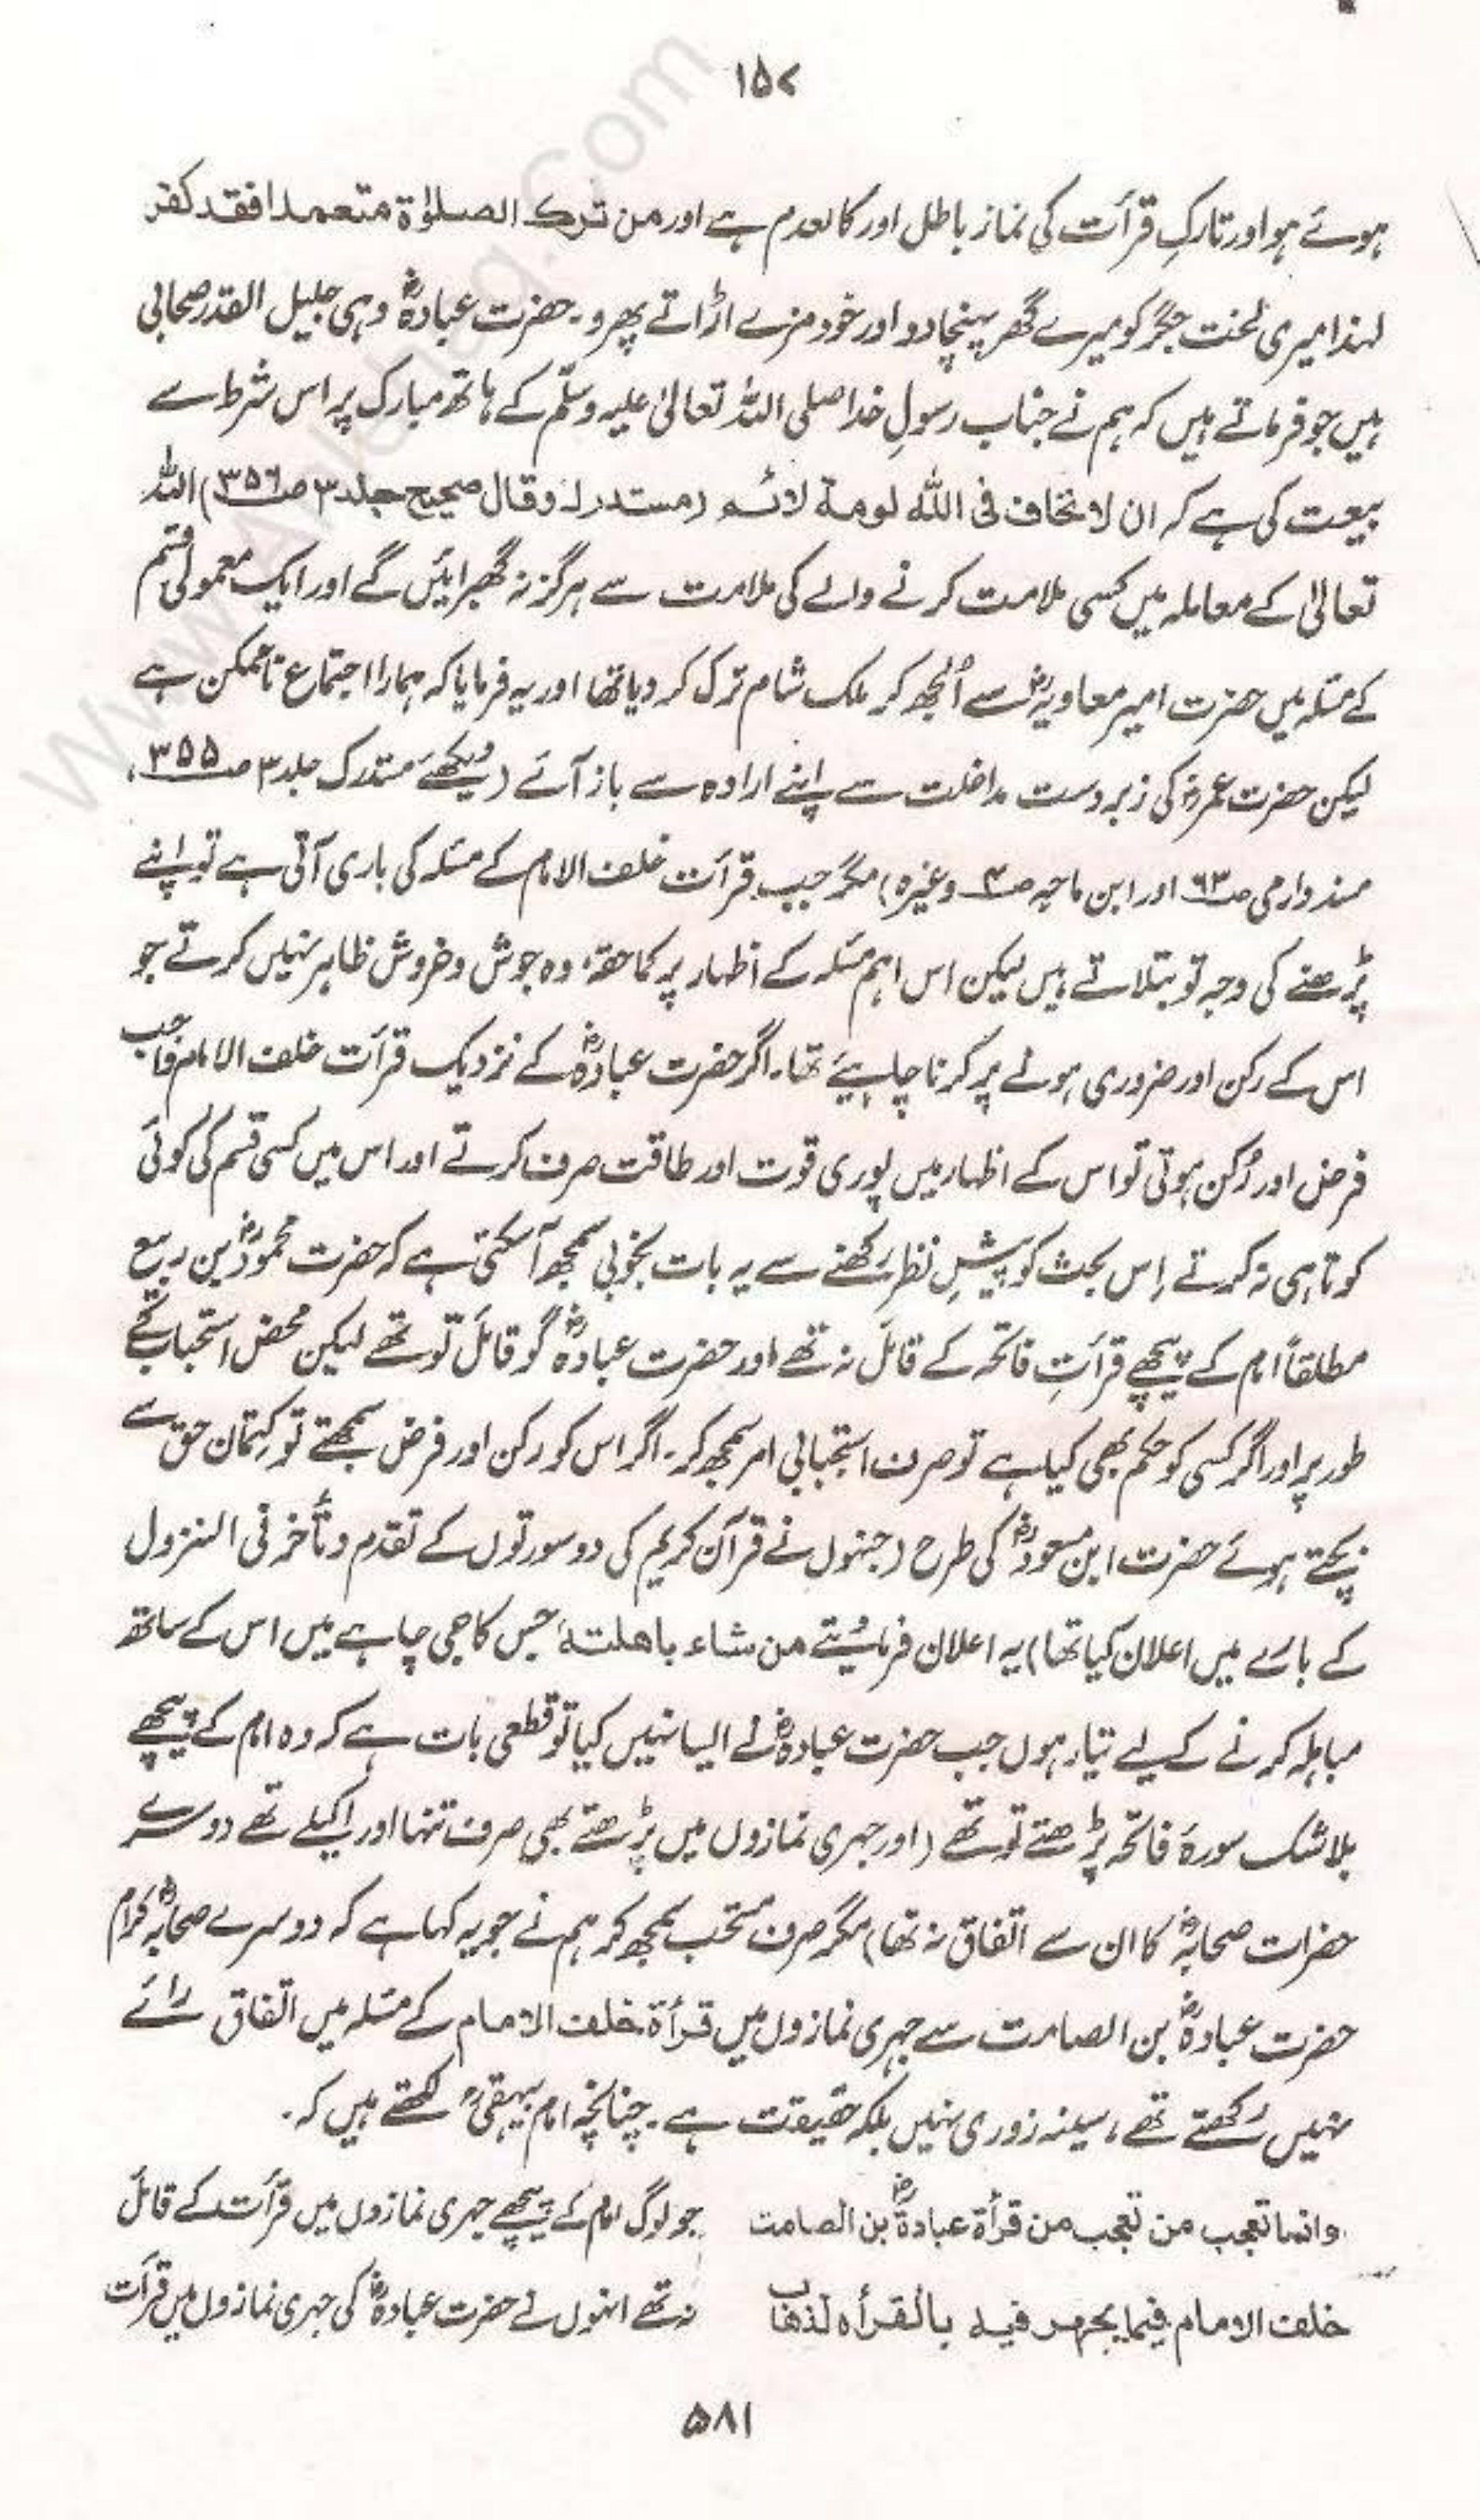 ۱۵۷
ہوئے ہو اور تارکِ قرأت کی نماز باطل اور کالعدم ہے اور من ترک الصلوٰۃ متعمدا فقد کفر
لہذا میری لخت جگر کو میرے گھر پہنچا دو اور خود مزے اڑاتے پھرو۔ حضرت عبادہؓ وہی جلیل القدر صحابی
ہیں جو فرماتے ہیں کہ ہم نے جناب رسولِ خدا صلی اللہ تعالیٰ علیہ وسلّم کے ہاتھ مبارک پر اس شرط سے
بیعت کی ہے کہ ان لا نخاف فی اللہ لومۃ لائم (مستدرک وقال صحیح جلد ۳ ص ۳۵۶) اللہ
تعالیٰ کے معاملہ میں کسی ملامت کرنے والے کی ملامت سے ہرگز نہ گھبرائیں گے اور ایک معمولی قسم
کے مسئلہ میں حضرت امیر معاویہؓ سے اُلجھ کر ملک شام ترک کر دیا تھا اور یہ فرمایا کہ ہمارا اجتماع ناممکن ہے
لیکن حضرت عمرؓ کی زبردست مداخلت سے اپنے ارادہ سے باز آئے (دیکھئے مستدرک جلد ۳ ص ۳۵۵،
مسند دارمی ص ۶۳ اور ابن ماجہ ص ۳ وغیرہ) مگر جب قرأت خلف الامام کے مسئلہ کی باری آتی ہے تو اپنے
پڑھنے کی وجہ تو بتلاتے ہیں لیکن اس اہم مسئلہ کے اظہار پر کما حقہٗ وہ جوش و خروش ظاہر نہیں کرتے جو
اس کے رکن اور ضروری ہونے پر کرنا چاہیئے تھا۔ اگر حضرت عبادہؓ کے نزدیک قرأت خلف الامام واجب
فرض اور رُکن ہوتی تو اس کے اظہار میں پوری قوت اور طاقت صرف کرتے اور اس میں کسی قسم کی کوئی
کوتاہی نہ کرتے اِس بحث کو پیشِ نظر رکھنے سے یہ بات بخوبی سمجھ آ سکتی ہے کہ حضرت محمودؓ بن ربیع
مطلقاً امام کے پیچھے قرأتِ فاتحہ کے قائل نہ تھے اور حضرت عبادہؓ گو قائل تو تھے لیکن محض استحباب کے
طور پر اور اگر کسی کو حکم بھی کیا ہے تو صرف استحبابی امر سمجھ کر۔ اگر اس کو رکن اور فرض سمجھتے تو کتمان حق سے
بچتے ہوئے حضرت ابن مسعودؓ کی طرح (جنہوں نے قرآن کریم کی دو سورتوں کے تقدم و تأخر فی النزول
کے بارے میں اعلان کیا تھا) یہ اعلان فرما دیتے من شاء باھلتہ جس کا جی چاہے میں اس کے ساتھ
مباہلہ کرنے کے لیے تیار ہوں جب حضرت عبادہؓ نے ایسا نہیں کیا تو قطعی بات ہے کہ وہ امام کے پیچھے
بلاشک سورۂ فاتحہ پڑھتے تو تھے (اور جہری نمازوں میں پڑھتے بھی صرف تنہا اور اکیلے تھے دوسرے
حضرات صحابہؓ کا ان سے اتفاق نہ تھا) مگر صرف مستحب سمجھ کر ہم نے جو یہ کہا ہے کہ دوسرے صحابہؓ کرام
حضرت عبادہؓ بن الصامت سے جہری نمازوں میں قرأۃ خلف الامام کے مسئلہ میں اتفاق رائے
نہیں رکھتے تھے، سینہ زوری نہیں بلکہ حقیقت ہے۔ چنانچہ امام بیہقیؒ لکھتے ہیں کہ۔
وانما تعجب من تعجب من قرأۃ عبادۃؓ بن الصامت
خلف الامام فیما یجھر فیہ بالقرأۃ لذھاب
جو لوگ امام کے پیچھے جہری نمازوں میں قرأت کے قائل
نہ تھے انہوں نے حضرت عبادہؓ کی جہری نمازوں میں قرأت
۵۸۱
www.Ahlehaq.Com